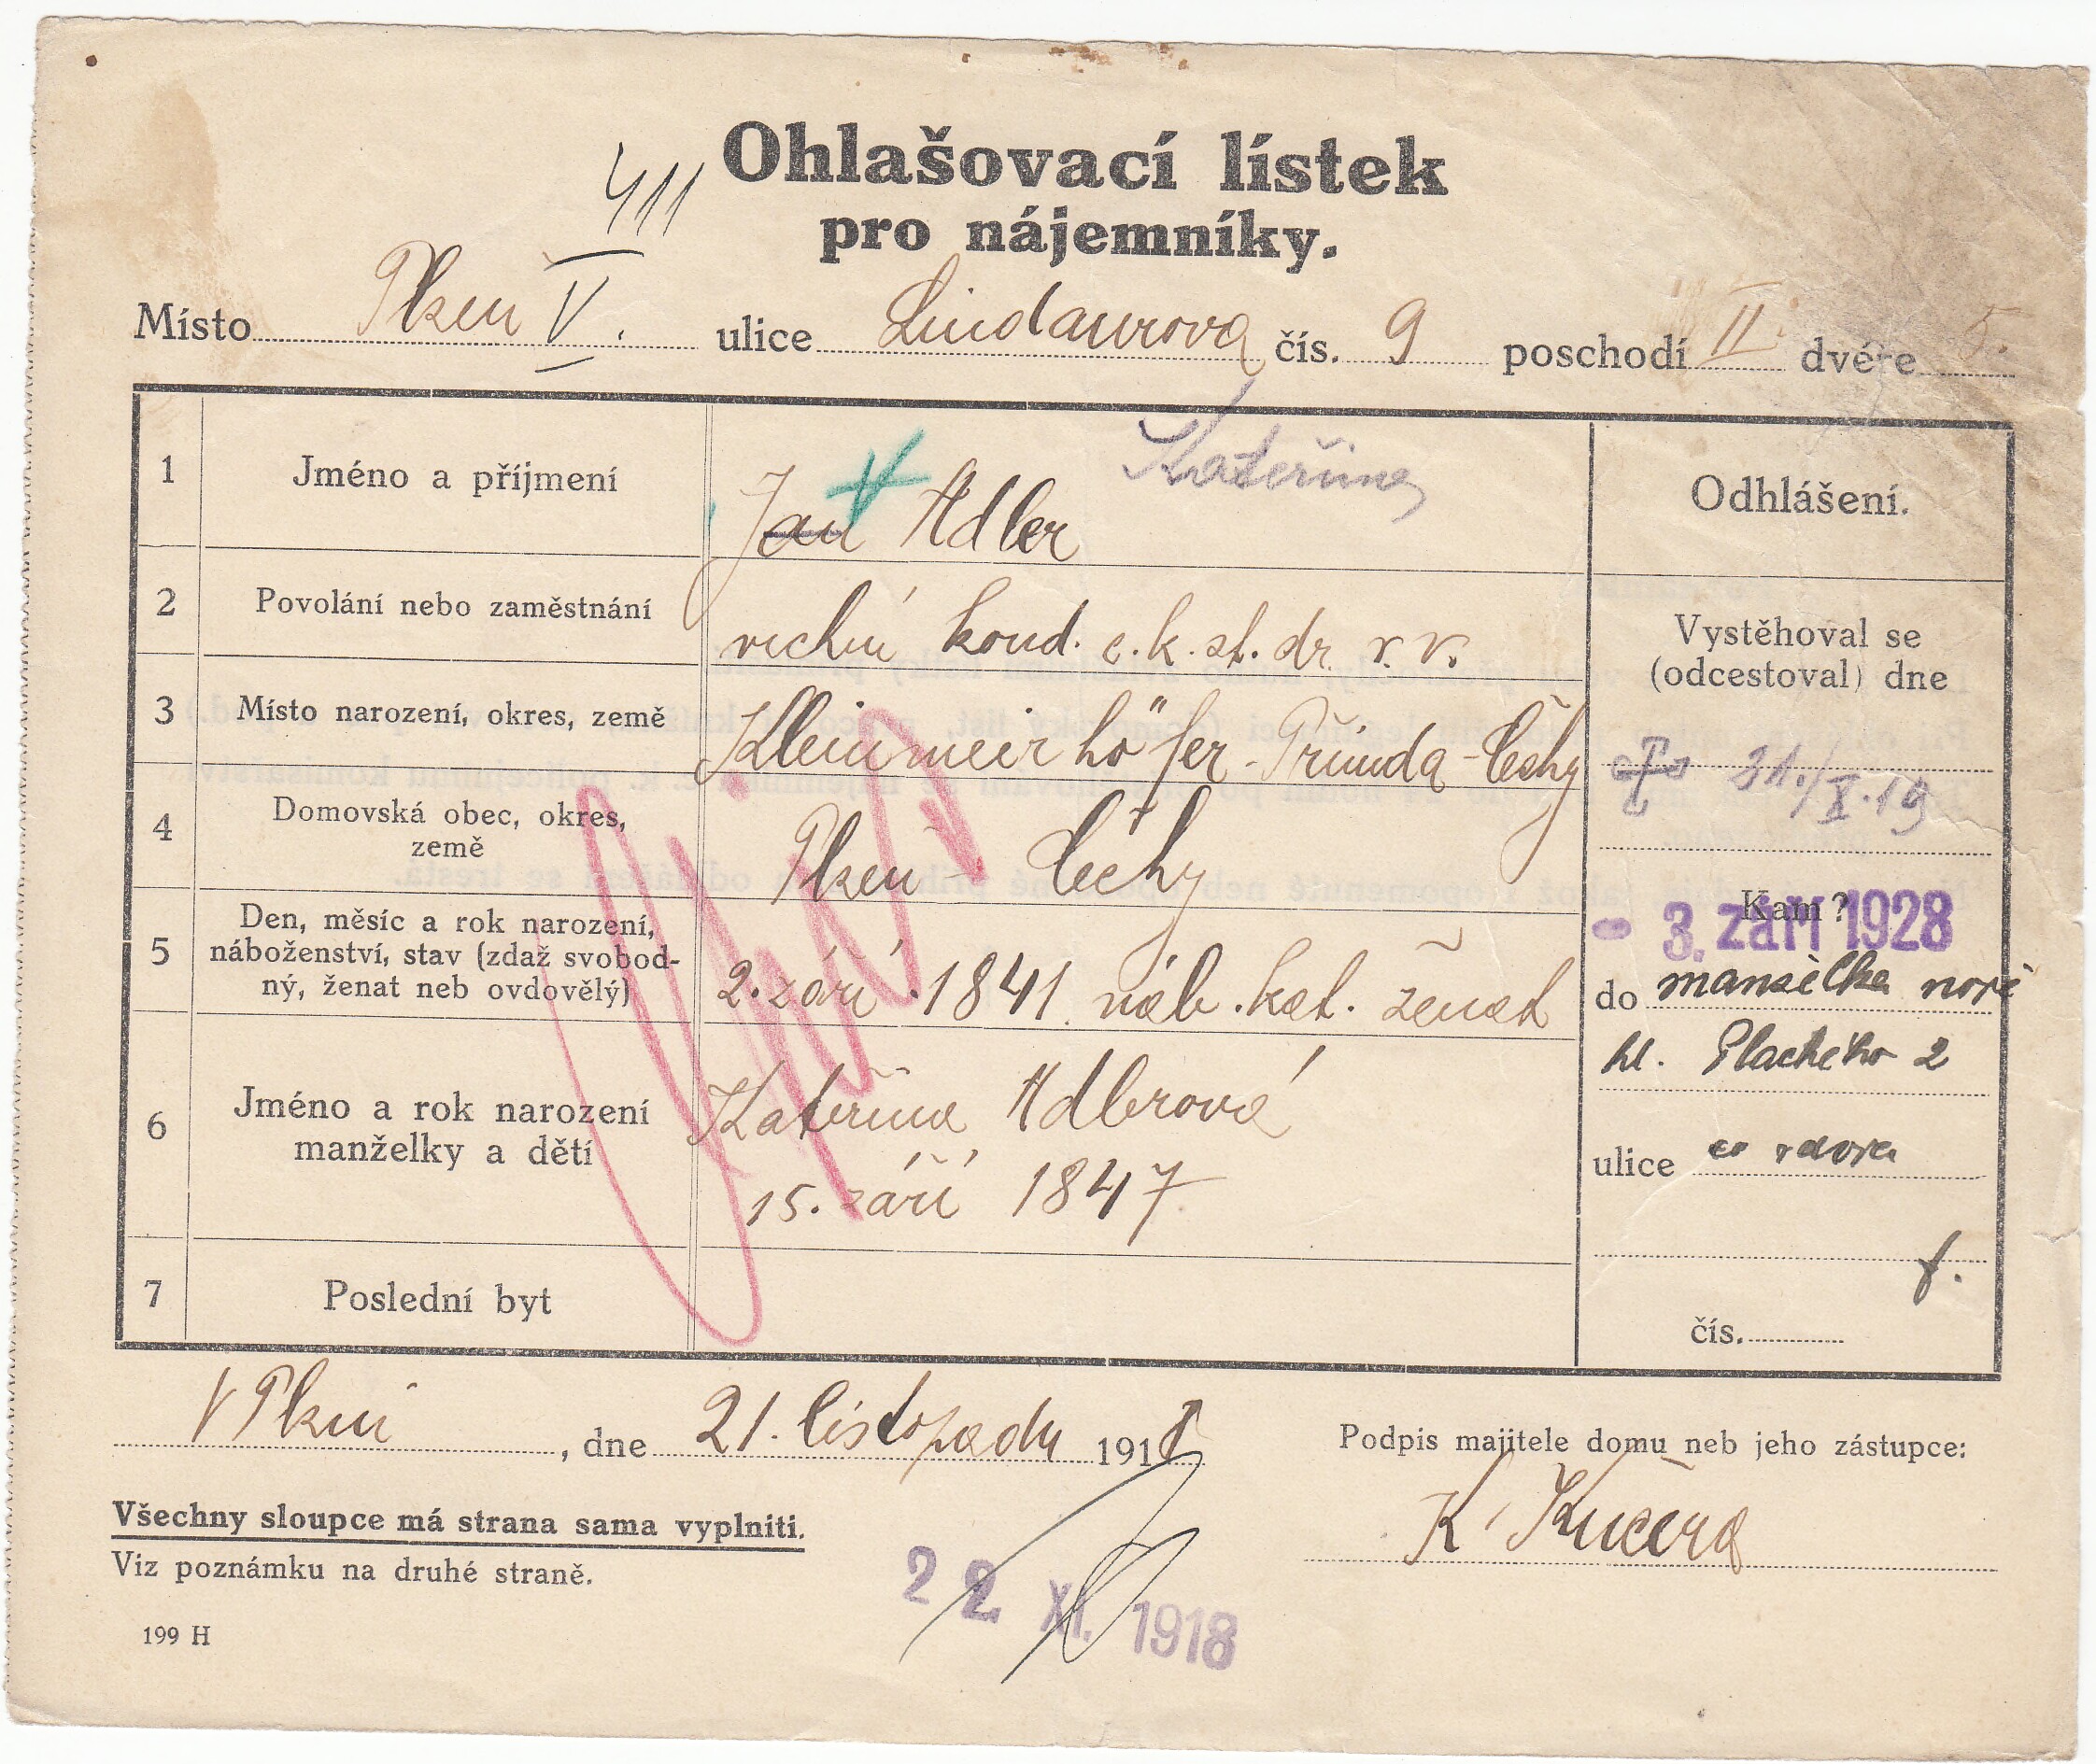 Ohlašovací lístek
411
pro nájemníky.
Místo Plzeň V. ulice Lindaurova čís. 9 poschodí II. dvéře 5.
1 Jméno a příjmení Jan Adler Kateřina Odhlášení.
2 Povolání nebo zaměstnání vrchní kond. c. k. st. dr. v. v.
Vystěhoval se
(odcestoval) dne
3 Místo narození, okres, země Kleinmeierhöfer - Přimda - Čechy
31./X.19
4 Domovská obec, okres,
země
Plzeň - Čechy
Kam?
- 3. září 1928
5 Den, měsíc a rok narození,
náboženství, stav (zdaž svobod-
ný, ženat neb ovdovělý)
2. září 1841 náb. kat. ženat
do manželka nově
hl. Plachého 2
6 Jméno a rok narození
manželky a dětí
Kateřina Adlerová
15. září 1847
ulice co vdova
f.
7 Poslední byt
čís.
V Plzni, dne 21. listopadu 1918
Podpis majitele domu neb jeho zástupce:
K. Kučera
Všechny sloupce má strana sama vyplniti.
Viz poznámku na druhé straně.
22 XI. 1918
199 H